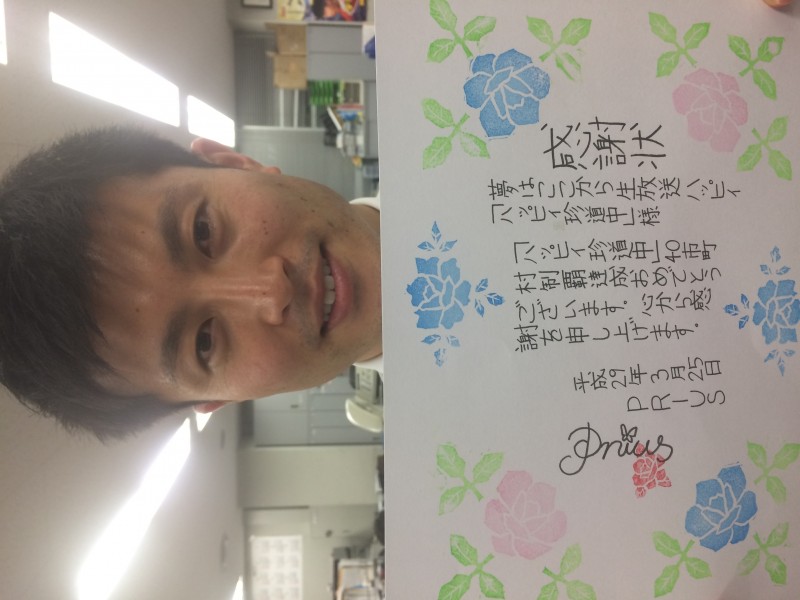 感謝状
夢はここから生放送ハッピィ
「ハッピィ珍道中」様
「ハッピィ珍道中」40市町
村制覇達成おめでとう
ございます。心から感
謝を申し上げます。
平成29年3月25日
PRIUS
Prius